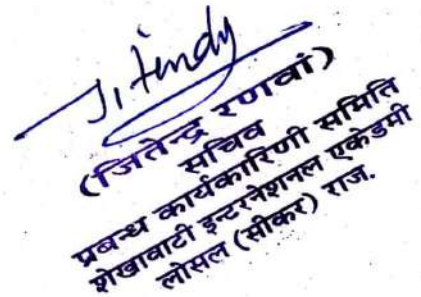 Jitendy
(जितेन्द्र रणवां)
सचिव
प्रबन्ध कार्यकारिणी समिति
शेखावाटी इन्टरनेशनल एकेडमी
लोसल (सीकर) राज.